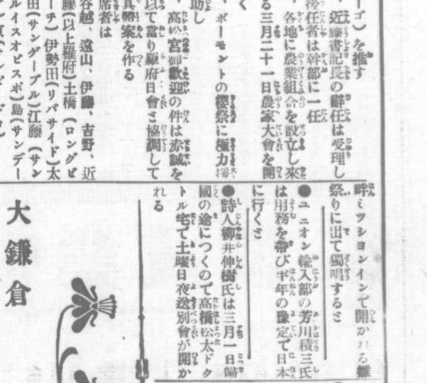 ーゴ）を推す
近藤書記長の辭任は受理し
後任者は幹部に一任
各地に農業組合を設立し來
る三月二十一日農家大會を開
く
ボーモントの櫻祭に極力
助し
高松宮御歡迎の件は赤誠を
以て當り羅府日會と協調して
具體案を作る
席者は
谷越、遠山、伊藤、吉野、近
藤（以上羅府）土橋（ロングビ
ーチ）伊勢田（リバサイド）太
田（サンデーブル）江藤（サン
ルイスオビスポ）島（サンデー
畔ミツシヨンインで開かれる雛
祭りに出て獨唱すると
●ユニオン輸入部の芳川積三氏
は用務を帶び半年の豫定で日本
に行くと
●詩人柳井伸樹氏は三月一日歸
國の途につくので高橋松太ドク
トル宅で土曜日夜送別會が開か
れる
大鎌倉